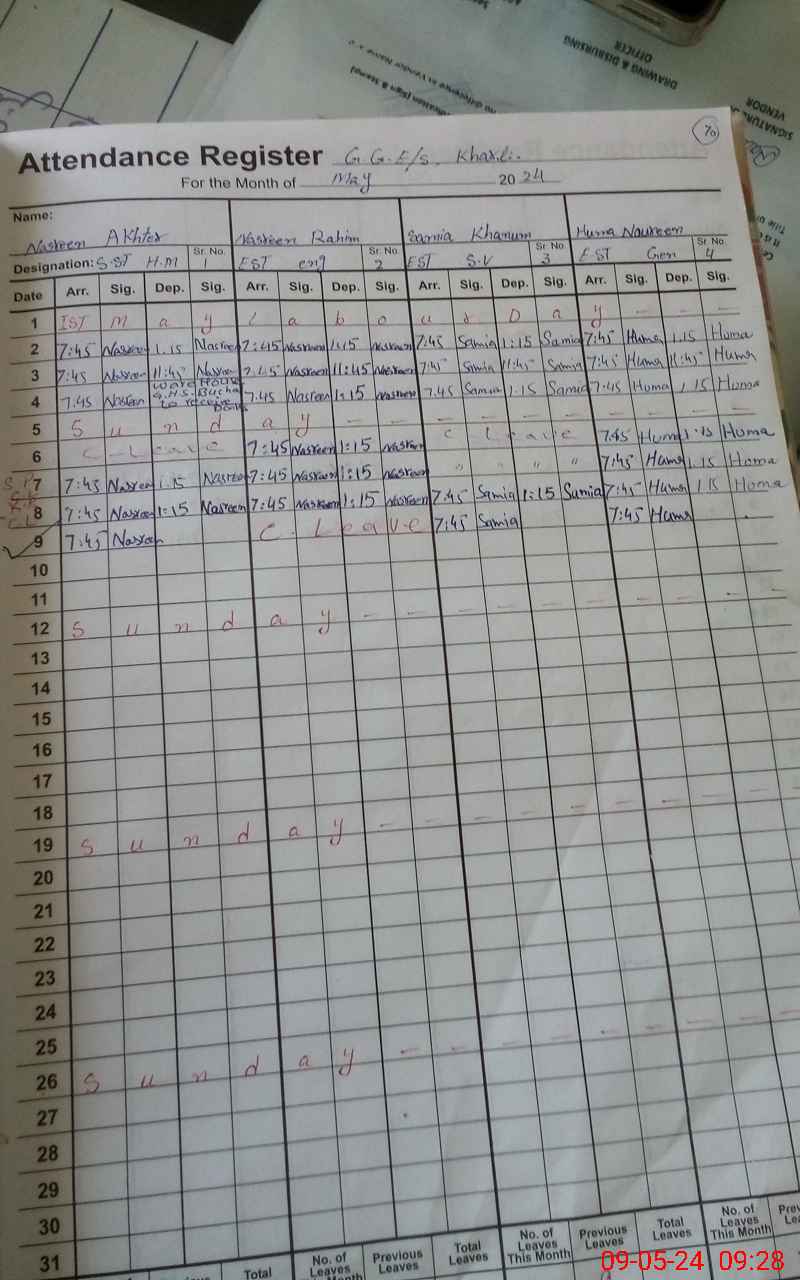 DRAWING & DISBURSING
OFFICER
VENDOR
70
Attendance Register G.G.E/S. Kharli.
For the Month of May 20 24
Name:
Nasreen Akhter Nasreen Rahim Samia Khanum Huma Noureen
Designation: S.ST H.M Sr. No. 1 EST eng Sr. No. 2 EST S.V Sr. No. 3 EST Gen Sr. No. 4
Date Arr. Sig. Dep. Sig. Arr. Sig. Dep. Sig. Arr. Sig. Dep. Sig. Arr. Sig. Dep. Sig.
1 IST M a y L a b o u r D a y - - -
2 7:45 Nasreen 1.15 Nasreen 7:45 Nasreen 1:15 Nasreen 7:45 Samia 1:15 Samia 7:45 Huma 1.15 Huma
3 7:45 Nasreen 11:45 Nasreen 7:45 Nasreen 11:45 Nasreen 7:45 Samia 11:45 Samia 7:45 Huma 11:45 Huma
4 7.45 Nasreen ware House G.H.S. to receive 7:45 Nasreen 1:15 Nasreen 7.45 Samia 1.15 Samia 7:45 Huma 1.15 Huma
5 S u n d a y - - - - - - - - - -
6 C - Leave 7:45 Nasreen 1:15 Nasreen C Leave 7:45 Huma 1:15 Huma
7 7:45 Nasreen 1.15 Nasreen 7:45 Nasreen 1:15 Nasreen " " " " 7:45 Huma 1.15 Huma
8 7:45 Nasreen 1:15 Nasreen 7:45 Nasreen 1:15 Nasreen 7:45 Samia 1:15 Samia 7:45 Huma 1.15 Huma
9 7:45 Nasreen C. Leave 7:45 Samia 7:45 Huma
10
11
12 S u n d a y - - - - - - - - - -
13
14
15
16
17
18
19 S u n d a y - - - - - - - - - -
20
21
22
23
24
25
26 S u n d a y - - - - - - - - -
27
28
29
30
31
Total No. of Leaves This Month Previous Leaves Total Leaves No. of Leaves This Month Previous Leaves Total Leaves No. of Leaves This Month
09-05-24 09:28